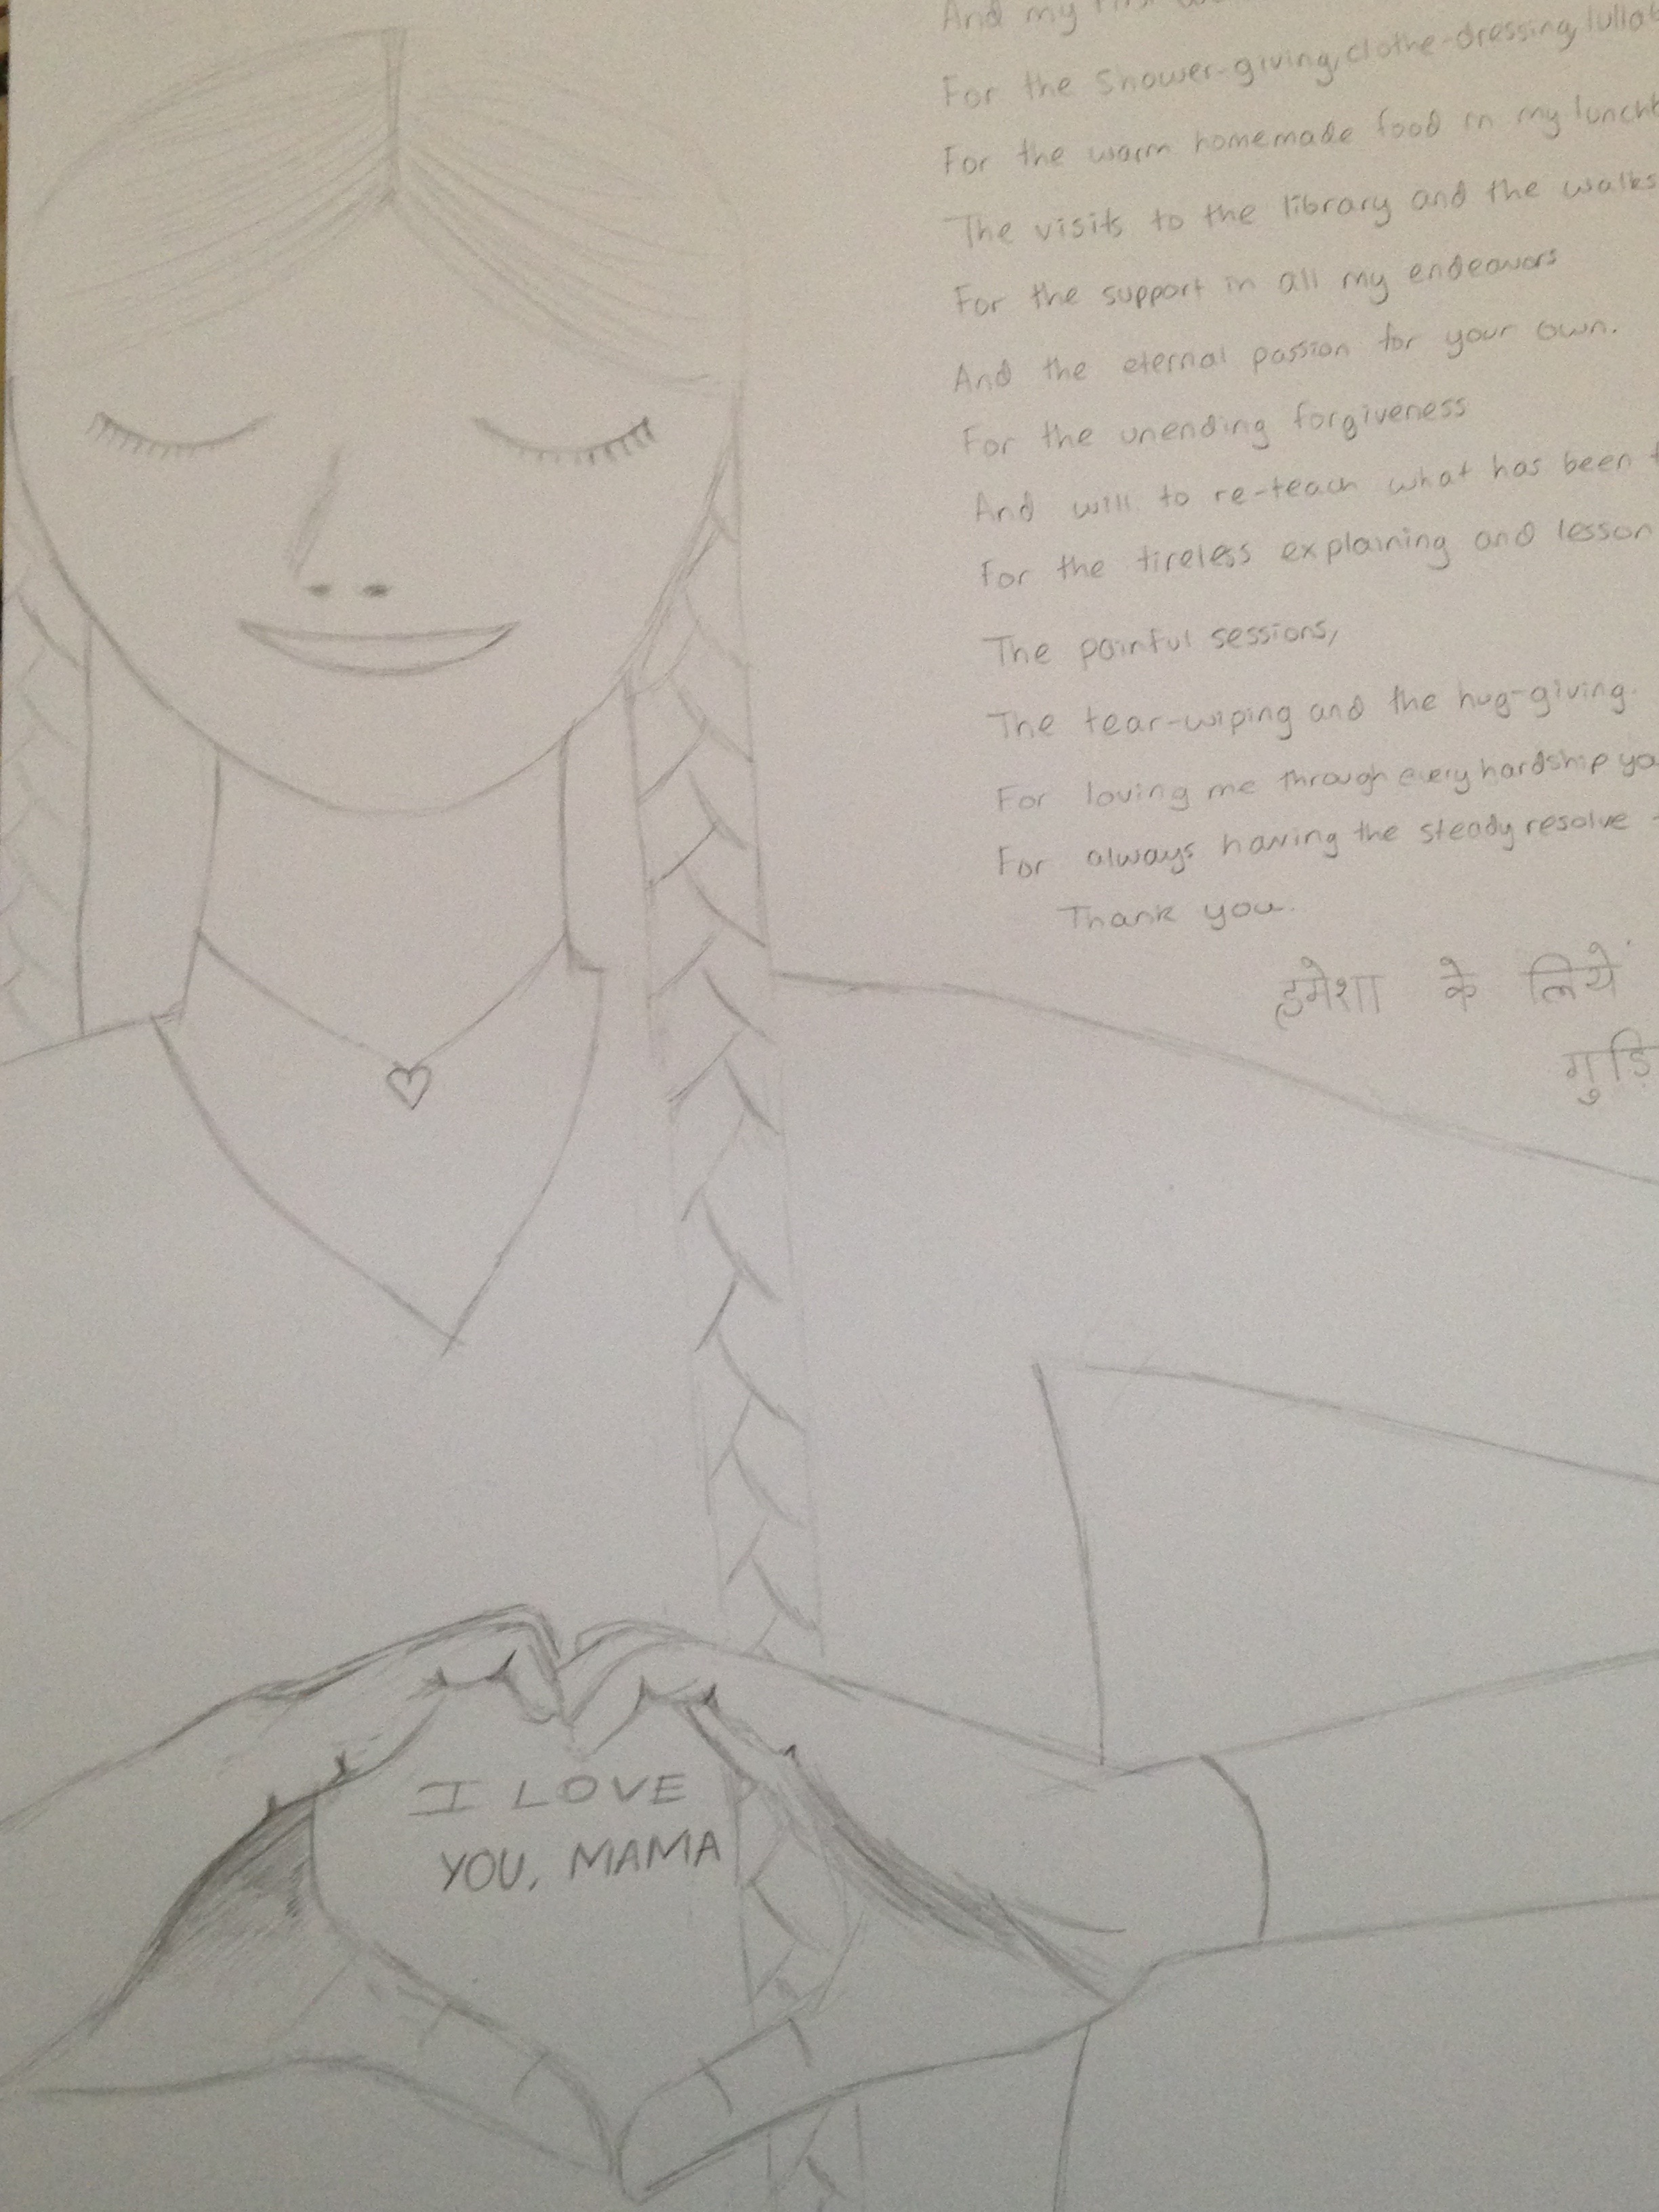 And my
For the shower-giving, clothe-dressing,
For the warm homemade food in my
The visits to the library and the walks
For the support in all my endeavors
And the eternal passion for your own.
For the unending forgiveness
And will to re-teach what has been
For the tireless explaining and lesson
The painful sessions,
The tear-wiping and the hug-giving.
For loving me through every hardship
For always having the steady resolve
Thank you.
हमेशा के लिये
I LOVE
YOU, MAMA